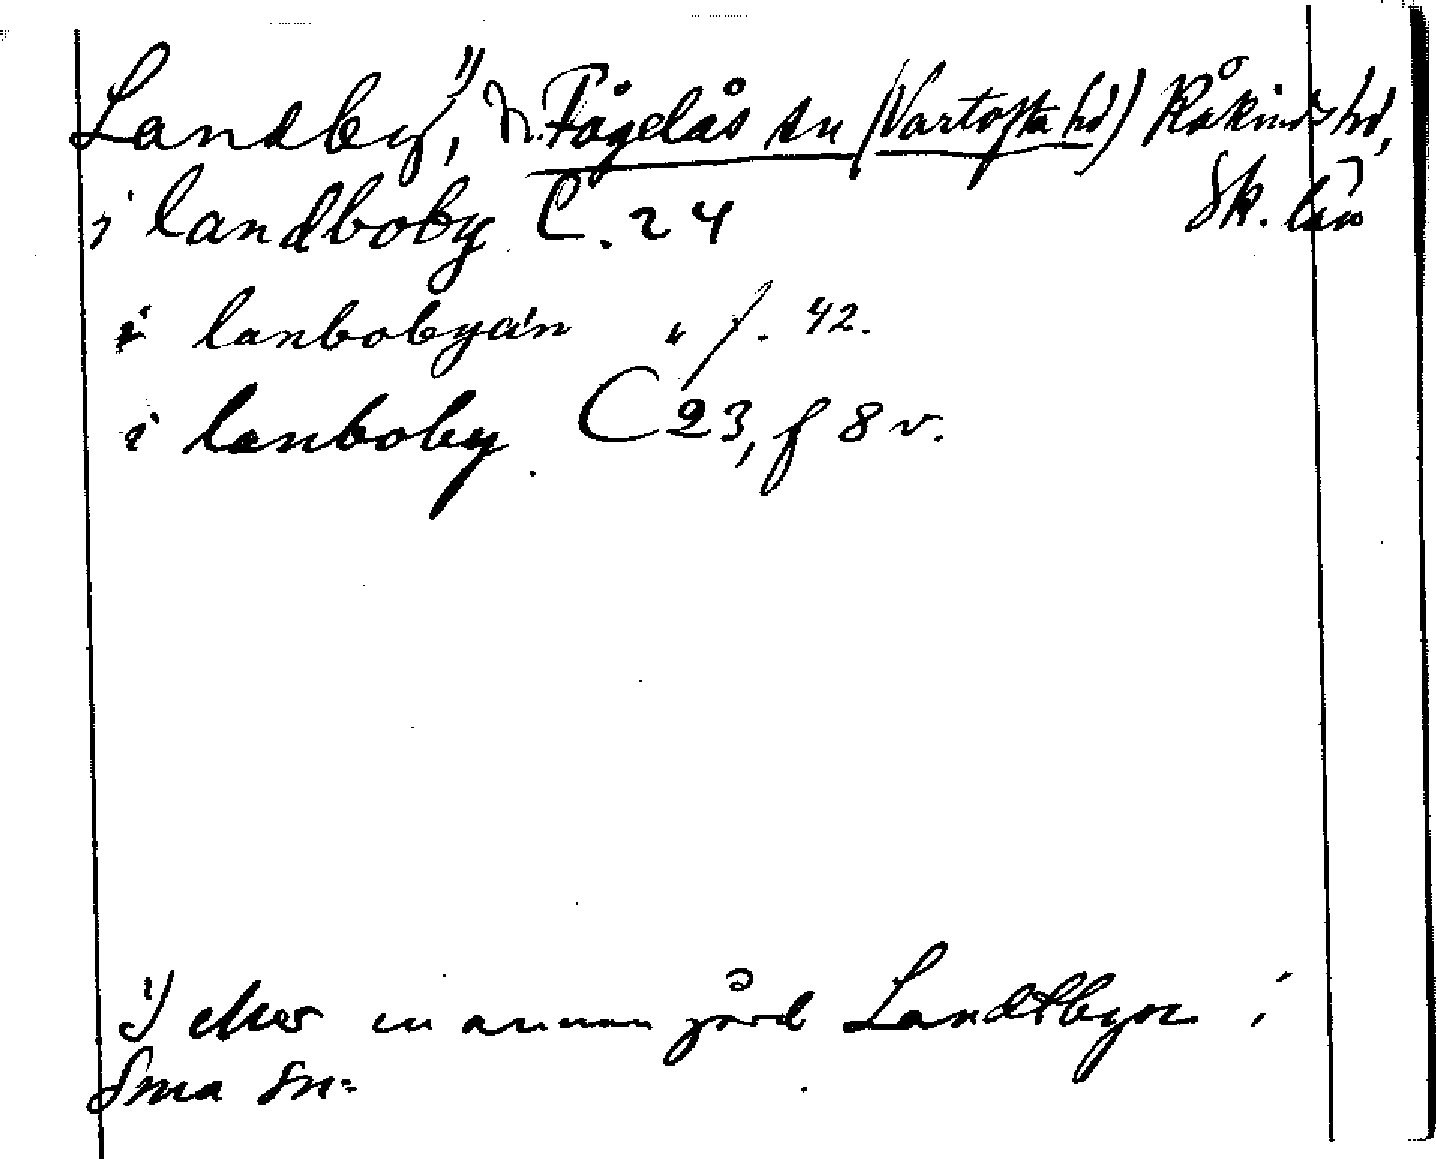 Landby,¹⁾ N. Fågelås sn (Vartofta hd) Kåkinds hd,
Sk. län
i landboby C. 24
i lanbobyän " f. 42.
i lanboby C 23, f 8 v.
¹⁾ eller en annan gård Landtbyn i
Sma sn.